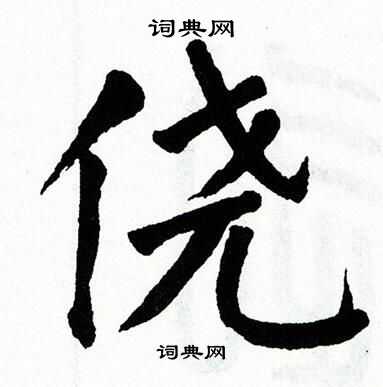 词典网
侥
词典网